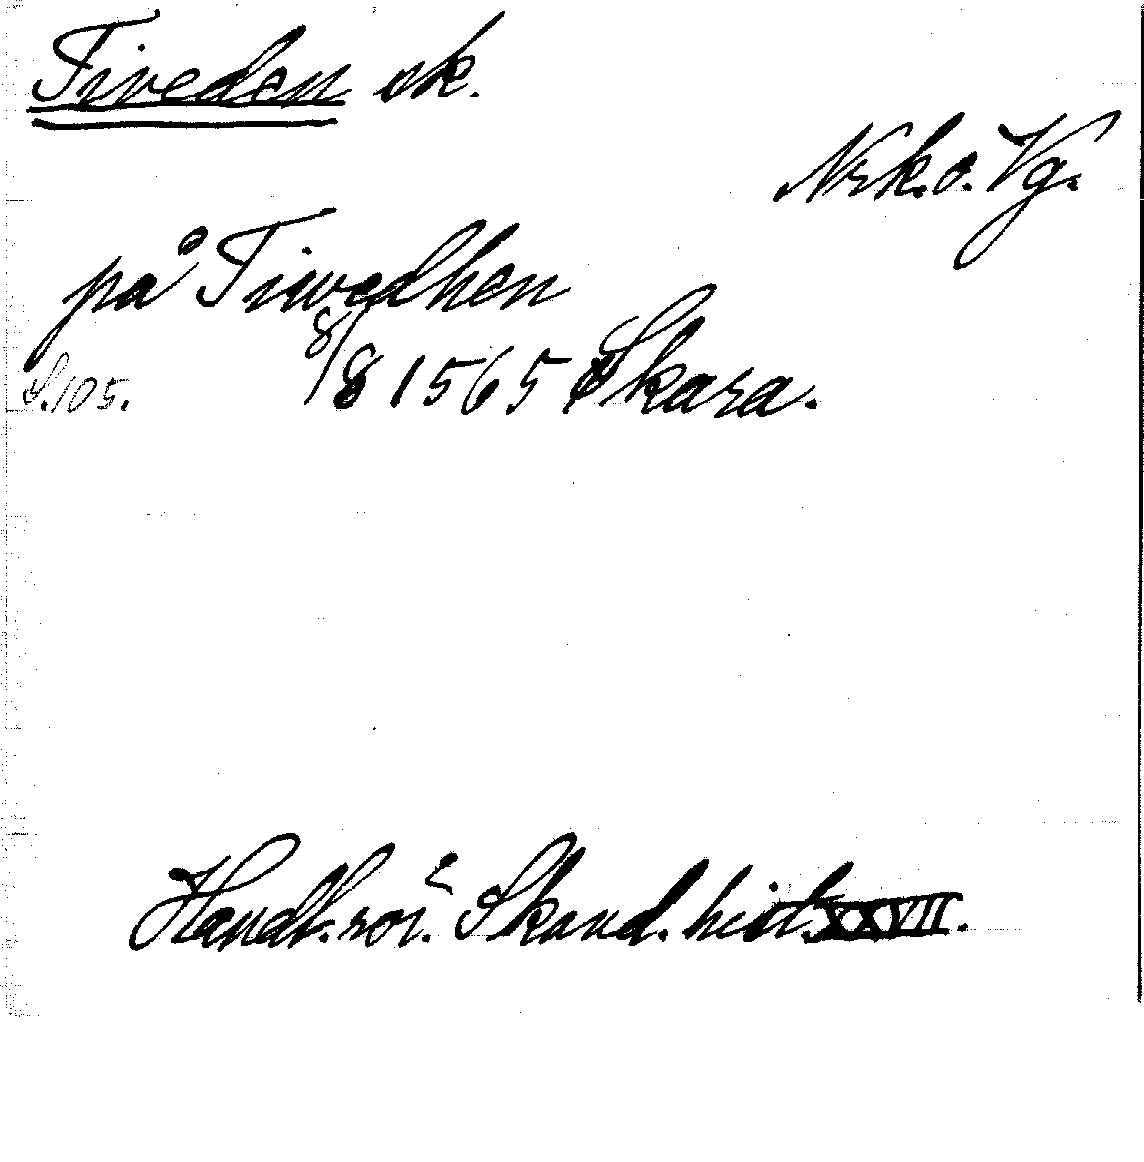 Tiveden sk.
Nrk. o. Vg.
på Tiwedhen
S. 105. 8/8 1565 Skara.
Handl. rör. Skand. hist. XXVII.